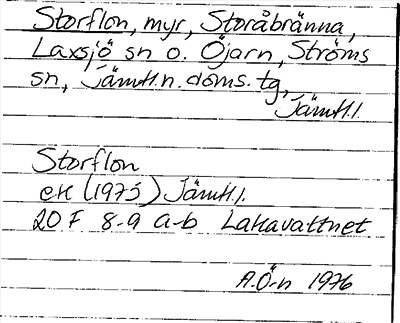 Storflon, myr, Storåbränna,
Laxsjö sn o. Öjarn, Ströms
sn, Jämtl. n. doms. tg,
Jämtl.l.
Storflon
ek (1975) Jämtl.l.
20 F 8-9 a-b Lakavattnet
A.Ö-n 1976